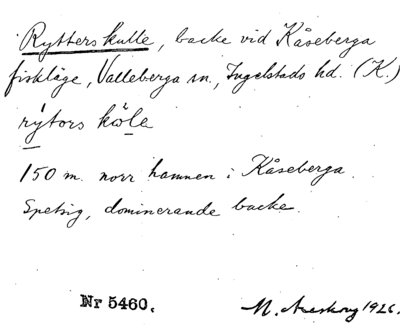 Rytters kulle, backe vid Kåseberga
fiskläge, Valleberga sn, Ingelstads hd. (K.)
rýtors kŏ́le
150 m. norr hamnen i Kåseberga.
Spetsig, dominerande backe.
Nr 5460.
M. Areskog 1926.